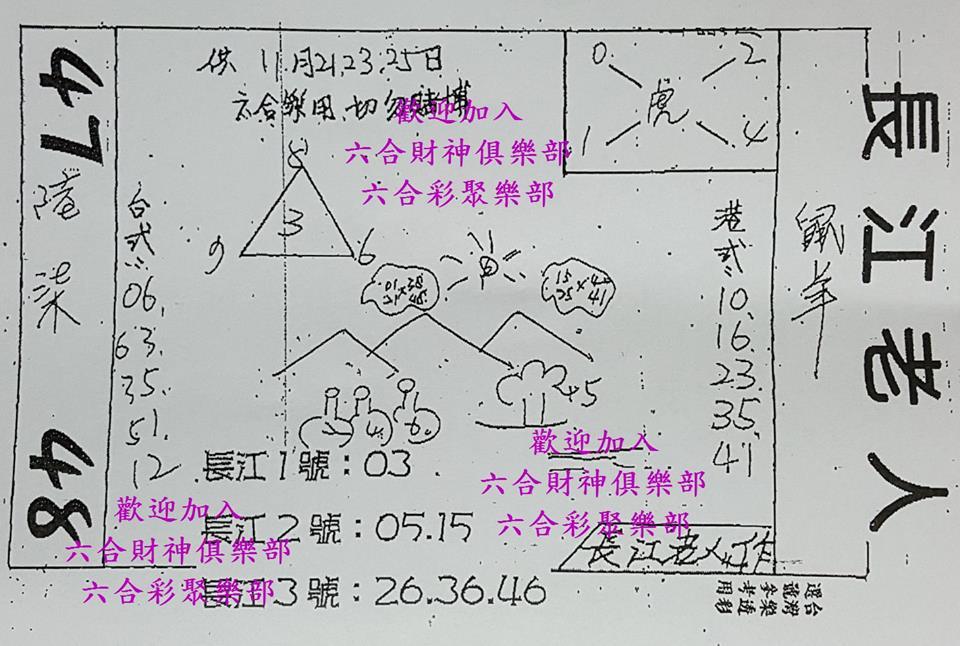 供 11月21.23.25日
六合樂用.切勿賭博
歡迎加入
六合財神俱樂部
六合彩聚樂部
0
2
虎
1
4
長江老人
鼠羊
47
48
陸柒
8
3
9
6
01 38
21 × 48
15 4
35 × 41
台式:
06.
63.
35.
51.
12
港式:
10.
16.
23.
35.
41
長江1號:03
長江2號:05.15
長江3號:26.36.46
歡迎加入
六合財神俱樂部
六合彩聚樂部
長江老人作
歡迎加入
六合財神俱樂部
六合彩聚樂部
台灣樂透彩
選號參考用